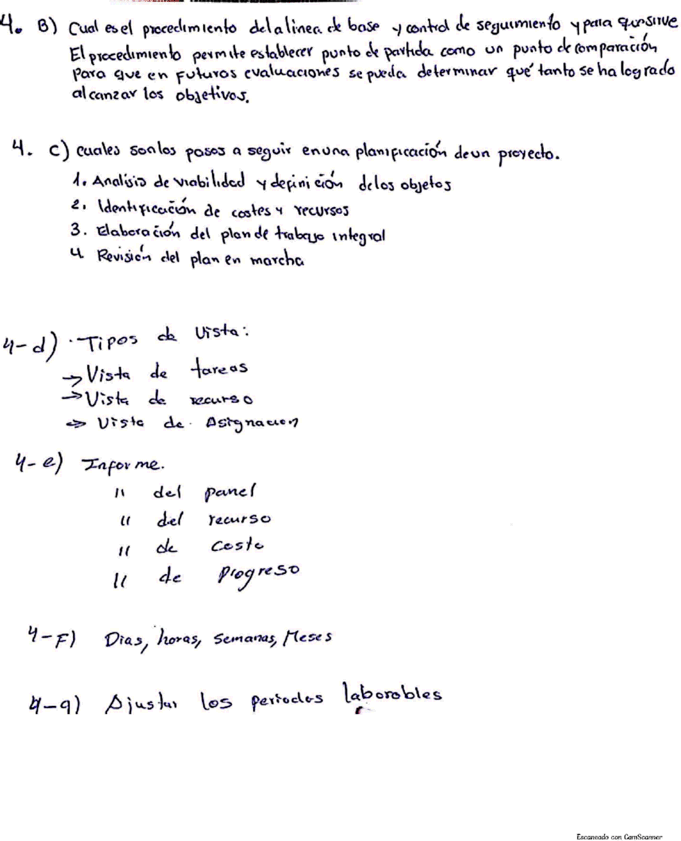 4. B) Cual es el procedimiento de la linea de base y control de seguimiento y para que sirve
El procedimiento permite establecer punto de partida como un punto de comparación
para que en futuros evaluaciones se pueda determinar qué tanto se ha logrado
alcanzar los objetivos.
4. c) cuales son los pasos a seguir en una planificación de un proyecto.
1. Analisis de viabilidad y definición de los objetos
2. Identificación de costes y recursos
3. Elaboración del plan de trabajo integral
4 Revisión del plan en marcha
4-d) · Tipos de Vista:
→ Vista de tareas
→ Vista de recurso
⇒ Vista de Asignacion
4-e) Informe.
" del panel
" del recurso
" de costo
" de progreso
4-F) Dias, horas, semanas, Meses
4-g) Ajustar los periodos laborables
Escaneado con CamScanner